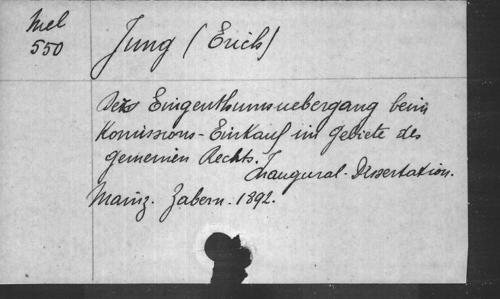 Mel
550
Jung (Erich)
Der Eingenthumsuebergang beim
Komissions-Einkauf im Gebiete des
gemeinen Rechts.
Inaugural-Dissertation.
Mainz. Zabern. 1892.